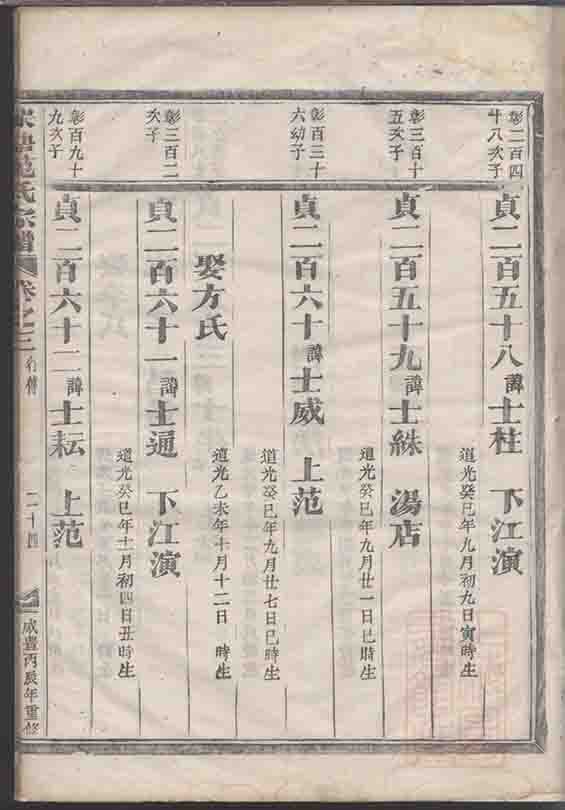 彰二百四
十八次子
貞二百五十八諱士柱 下江演
道光癸巳年九月初九日寅時生
彰三百十
五次子
貞二百五十九諱士絲 湯店
道光癸巳年九月廿一日巳時生
彰百三十
六幼子
貞二百六十諱士威 上范
道光癸巳年九月廿七日巳時生
娶方氏
道光乙未年十月十二日 時生
彰三百二
次子
貞二百六十一諱士通 下江演
道光癸巳年十一月初四日丑時生
彰百九十
九次子
貞二百六十二諱士耘 上范
范氏宗譜 卷之三 行傳 二十四 咸豐丙辰年重修